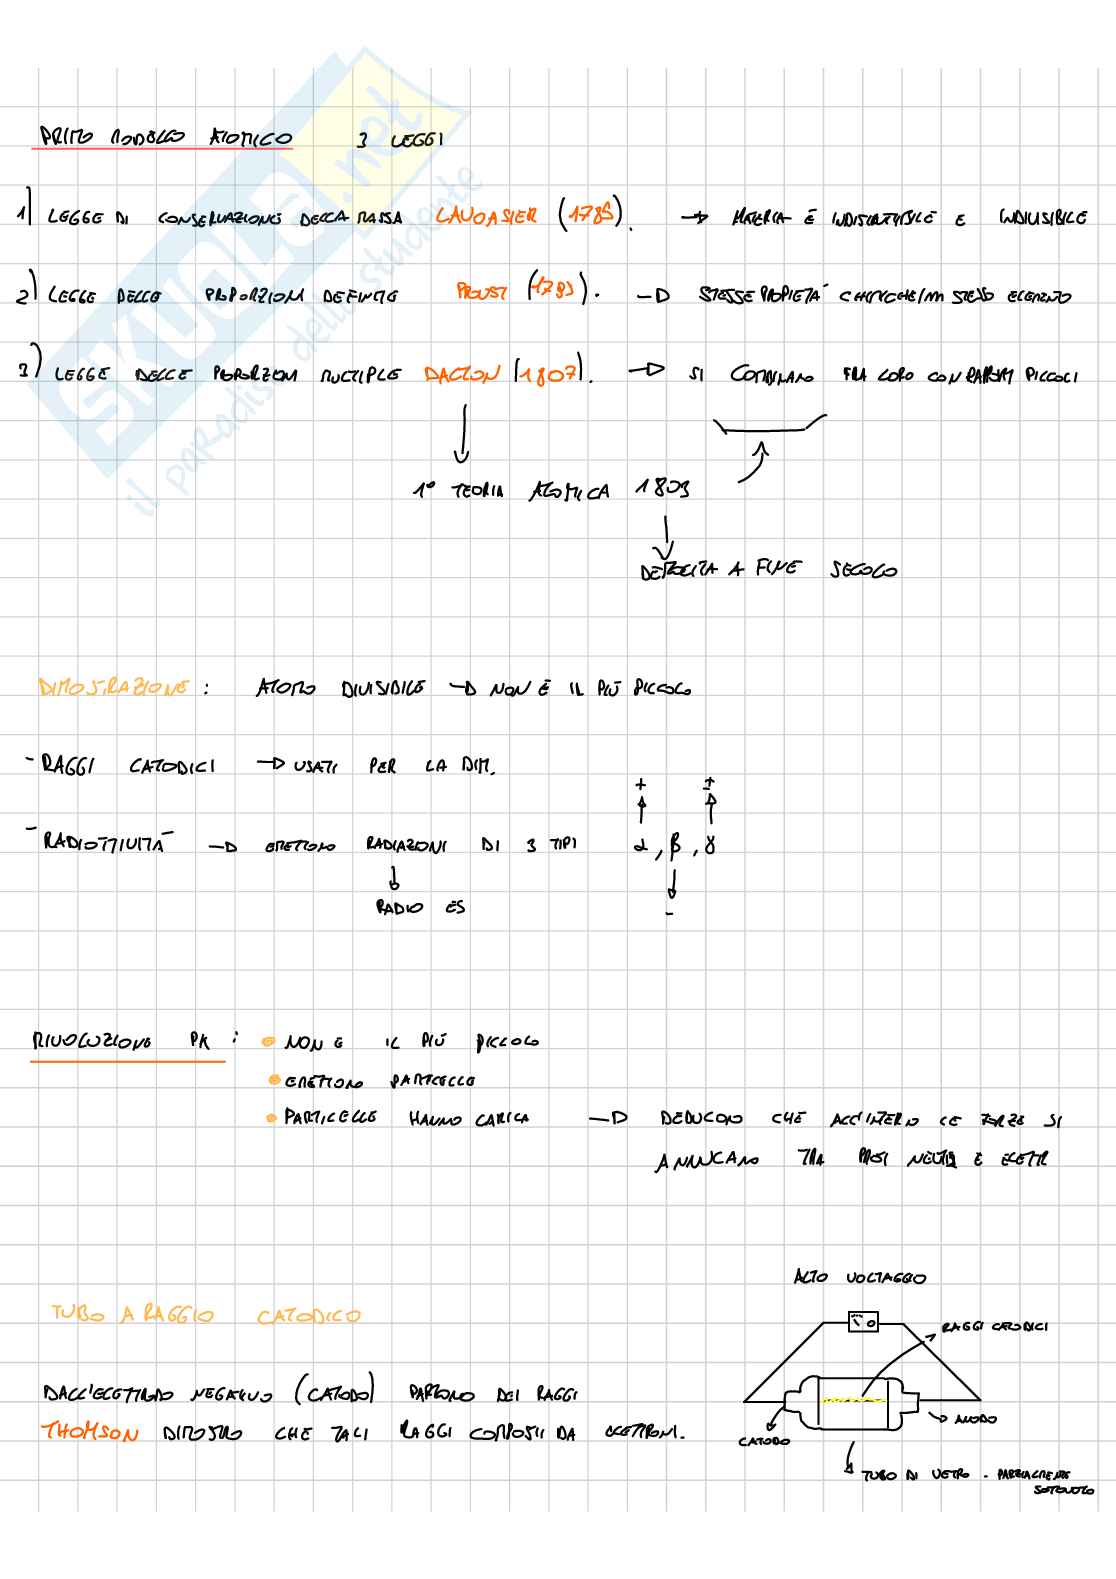 PRIMO MODELLO ATOMICO 3 LEGGI
1) LEGGE DI CONSERVAZIONE DELLA MASSA LAVOASIER (1785). → MATERIA È INDISTRUTTIBILE E INDIVISIBILE
2) LEGGE DELLE PROPORZIONI DEFINITE PROUST (1799). → STESSE PROPIETÀ CHIMICHE IN STESSO ELEMENTO
3) LEGGE DELLE PROPORZIONI MULTIPLE DALTON (1807). → SI COMBINANO FRA LORO CON RAPPORTI PICCOLI
1° TEORIA ATOMICA 1803
DEMOLITA A FINE SECOLO
DIMOSTRAZIONE: ATOMO DIVISIBILE → NON È IL PIÙ PICCOLO
- RAGGI CATODICI → USATI PER LA DIM.
+ ±
- RADIOTTIVITÀ → EMETTONO RADIAZIONI DI 3 TIPI α, β, γ
RADIO ES -
RIVOLUZIONE PK: NON E IL PIÙ PICCOLO
EMETTONO PARTICELLE
PARTICELLE HANNO CARICA → DEDUCONO CHE ALL'INTERNO LE FORZE SI
ANNULLANO TRA PROT NEUTR E ELETTR
ALTO VOLTAGGIO
TUBO A RAGGIO CATODICO
RAGGI CATODICI
DALL'ELETTRODO NEGATIVO (CATODO) PARTONO DEI RAGGI
ANODO
THOMSON DIMOSTRO CHE TALI RAGGI COMPOSTI DA ELETTRONI.
CATODO
TUBO DI VETRO - PARZIALMENTE
SOTTOVUOTO
SKUOLA.net
il paradiso dello studente